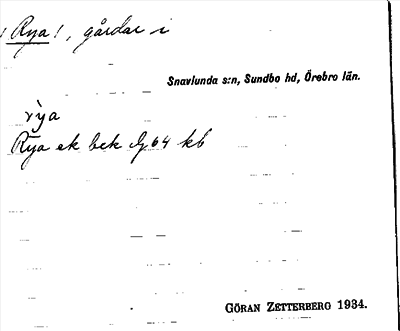 ! Rya!, gårdar i
Snavlunda s:n, Sundbo hd, Örebro län.
rỳa
Rya ek bek G64 kb
GÖRAN ZETTERBERG 1934.